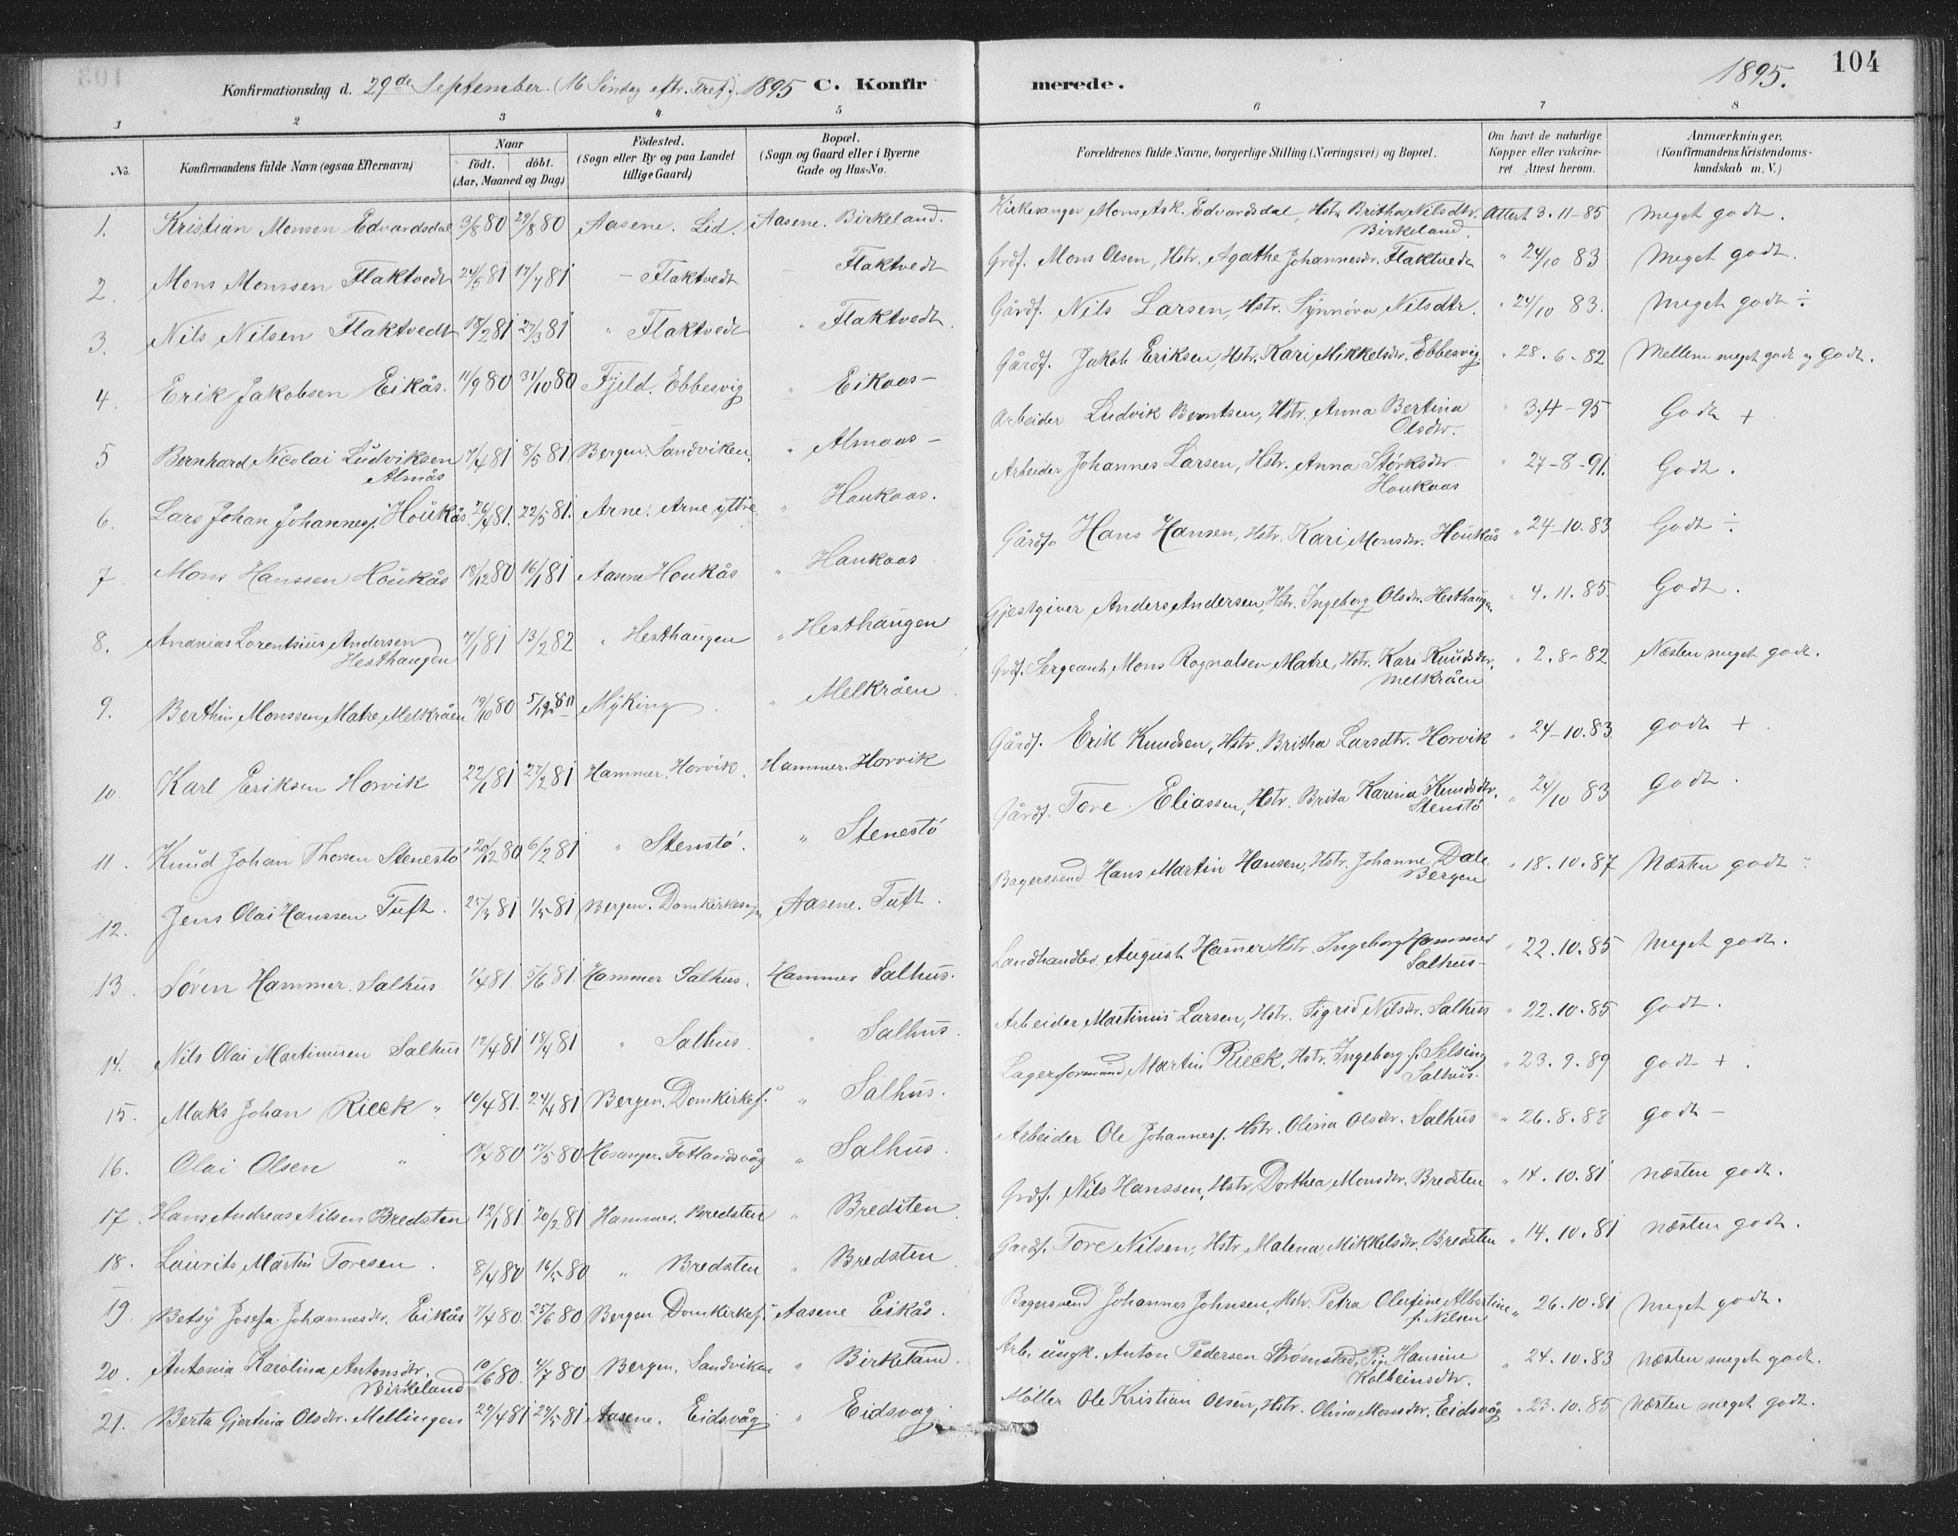 104
1895.
Konfirmationsdag d. 29de September (16 Søndag eftr. Tref.) 1895 C. Konfirmerede.
1 2 3 4 5 6 7 8
No.
Konfirmandens fulde Navn (ogsaa Efternavn)
Naar
födt. döbt.
(Aar, Maaned og Dag)
Födested.
(Sogn eller By og paa Landet
tillige Gaard)
Bopæl.
(Sogn og Gaard eller i Byerne
Gade og Hus-No.
Forældrenes fulde Navne, borgerlige Stilling (Næringsvei) og Bopæl.
Om havt de naturlige
Kopper eller vakcineret.
Attest herom.
Anmærkninger.
(Konfirmandens Kristendomskundskab
m. V.)
1. Kristian Monsen Edvardsdal 3/8 80 29/8 80 Aasene. Lid. Aasene. Birkeland. Kirkesanger Mons Ask. Edvardsdal, Hstr. Britha Nilsdtr. Birkeland. Attest 3.11-85 Meget godt.
2. Mons Monssen Flaktvedt 24/5 81 17/7 81 — Flaktvedt — Flaktvedt Grdf. Mons Olsen, Hstr. Agathe Johannesdr. Flaktvedt " 24/10 83 Meget godt.
3. Nils Nilsen Flaktvedt 18/2 81 27/3 81 " Flaktvedt " Flaktvedt. Gårdf. Nils Larsen, Hstr. Synnøva Nilsdtr. " 24/10 83. Meget godt ÷
4. Erik Jakobsen Eikås. 11/9 80 31/10 80 Fjeld. Ebbesvig " Eikaas— Gårdf. Jakob Eriksen, Hstr. Kari Mikkelsdr. Ebbesvig " 28.6-82 Mellem meget godt og Godt.
5 Bernhard Nicolai Ludviksen Almås 7/4 81 8/5 81 Bergen. Sandviken. " Almaas— Arbeider Ludvik Berntsen, Hstr. Anna Bertina Olsdtr. " 3.4-95 Godt +
6. Lars Johan Johannesf. Houkås 26/4 81. 22/5 81. Arne. Arne ytre " Haukaas. Arbeider Johannes Larsen, Hstr. Anna Størksdtr. Houkaas " 27-8-91. Godt.
7. Mons Hanssen Houkås 18/12 80 16/1 81 Aasene Houkås " Haukaas Gårdf. Hans Hansen, Hstr. Kari Monsdr. Houkås " 24-10.83 Godt ÷
8. Andreas Lorentsius Andersen Hesthaugen 7/1 81 13/2 82 " Hesthaugen " Hesthaugen Gjestgiver Anders Andersen, Hstr. Ingeborg Olsdr. Hesthaugen " 4.11.85. Godt.
9. Berthin Monssen Matre, Melkråen 19/10 80 5/12 80 Myking. " Melkråen. Grdf. Sergeant Mons Rognalsen Matre, Hstr. Kari Knudsdr. Melkråen " 2.8-82 Næsten meget godt.
10. Karl Eriksen Horvik 22/1 81 27/2 81 Hammer. Horvik. Hammer. Horvik Gårdf. Erik Knudsen, Hstr. Britha Larsdtr. Horvik " 24-10.83 godt +.
11. Knud Johan Thorsen Stenestö 20/12 80 6/2 81 " Stenstö. " Stenestö Gårdf. Tore Eliassen, Hstr. Brita Karina Knudsdtr. Stenstö " 24/10 83 godt.
12. Jens Olai Hanssen Tuft. 25/3 81 1/5 81 Bergen. Domkirkesogn Aasene. Tuft. Bagersvend Hans Martin Hansen, Hstr. Johanne Dale Bergen " 18.10.87 Næsten godt
13. Søren Hammer. Salhus 1/4 81 5/6 81 Hammer Salhus. Hammer Salhus. Landhandler August Hamer, Hstr. Ingeborg Hammer Salhus— " 22.10.85 Meget godt.
14. Nils Olai Martinusen Salhus 12/4 81 18/4 81 " Salhus. " Salhus. Arbeider Martinus Larsen, Hstr. Sigrid Nilsdr. Salhus " 22.10.85 godt.
15. Maks Johan Rieck " 10/4 81. 24/4 81 Bergen. Domkirkef. " Salhus. Lagerformand Martin Rieck, Hstr. Ingeborg f. Selsing Salhus. " 23.9.89 godt +.
16. Olai Olsen " 80 17/5 80 Hosanger. Totlandsvåg " Salhus. Arbeider Ole Johannesf. Hstr. Olina Olsdr. Salhus " 26.8.88 godt —
17. Hans Andreas Nilsen Bredsten 12/1 81 20/2 81 Hammer. Bredsten " Bredsten. Grdf. Nils Hanssen, Hstr. Dorthea Monsdr. Bredsten " 14.10.81 næsten godt.
18. Laurits Martin Toresen. 8/4 80 16/5 80 " Bredsten " Bredsten. Gardf. Tore Nilsen, Hstr. Malena Mikkelsdr. Bredsten " 14.10.81 næsten godt.
19. Betsy Josefa Johannesdr. Eikås 7/4 80. 25/6 80 Bergen Domkirkef. Aasene Eikås. Bagersvend Johannes Johnsen, Hstr. Petra Olufine Albertine f. Nilsen " 26.10.81 Meget godt.
20. Antonia Karolina Antonsdtr. Birkeland 10/6 80. 4/7 80 Bergen, Sandviken " Birkeland. Arb. ungk. Anton Pedersen Strømstad, Pige Hansine Kolbeinsdtr. " 24.10.83 næsten meget godt.
21. Berta Gjertina Olsdtr. Mellingen 22/4 81 29/5 81 Aasene. Eidsvåg " Eidsvag Møller Ole Kristian Olsen, Hstr. Olina Monsdtr. Eidsvåg " 23.10.85 næsten meget godt.